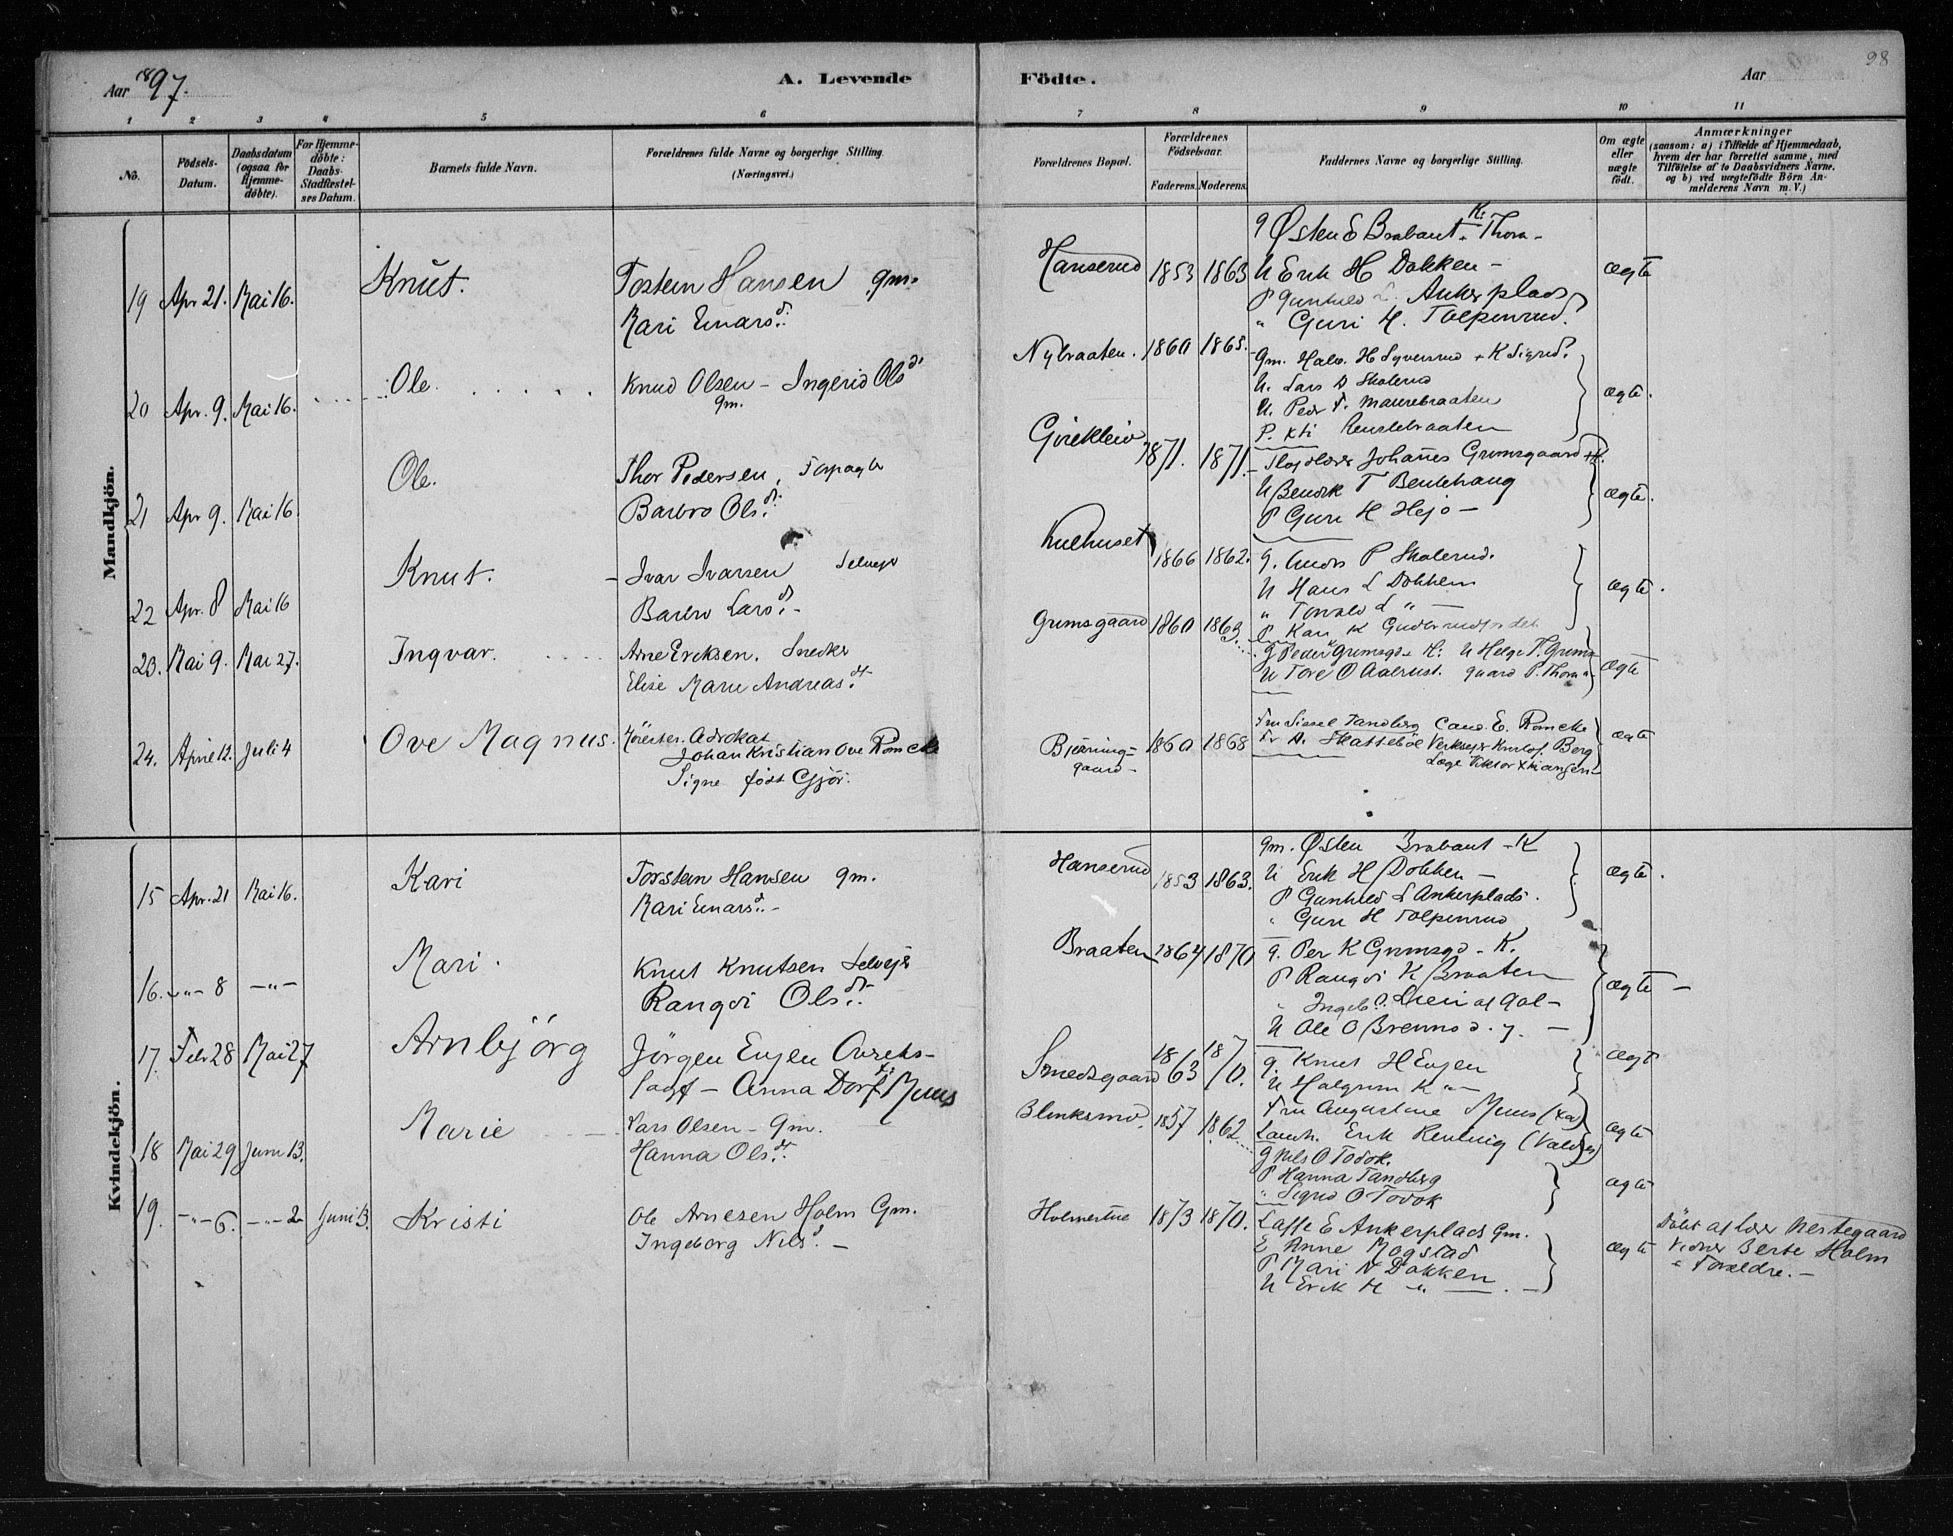 Aar 1897.
A. Levende
Födte.
Aar
98
1 2 3 4 5 6 7 8 9 10 11
No.
Födsels-Datum.
Daabsdatum (ogsaa for Hjemme-döbte).
For Hjemme-döbte: Daabs-Stadfæstel-ses Datum.
Barnets fulde Navn.
Forældrenes fulde Navne og borgerlige Stilling.
(Næringsvei.)
Forældrenes Bopæl.
Forældrenes Födselsaar.
Faderens. Moderens.
Faddernes Navne og borgerlige Stilling.
Om ægte eller uægte födt.
Anmærkninger
(saasom: a) i Tilfælde af Hjemmedaab,
hvem der har forrettet samme, med
Tilföielse af to Daabsvidners Navne,
og b) ved uægtefödte Börn An-
melderens Navn m. V.)
Mandkjön.
19 Apr 21. Mai 16. Knut. Tostein Hansen gm.
Kari Einarsd.
Hanserud 1853 1863
g Østen E Brabant. K: Thora -
U Erik H Dokken -
P Gunhild L. Ankerplads
" Guri H. Tolpinrud.
ægte
20 Apr. 9. Mai 16. Ole. Knud Olsen - Ingerid Olsd
gm.
Nybraaten. 1860 1865.
gm. Halv. H Syversrud + K Sigrid.
U. Lars Skolerud
U. Peder T. Maurebraaten
P. Kti braaten
ægte.
21 Apr 9. Mai 16 Ole. Thor Pedersen, Forpagter
Barbro Olsd.
1871. 1871.
Johannes Grimsgaard + K.
U T
P Guri H Hejo -
ægte.
22 Apr. 8 Mai 16 Knut. - Ivar Ivarsen Selvejer
Barbro Larsd. -
Kulhuset 1866 1862.
g. Anders P Skolerud.
U Hans L Dokken
" L " -
P Kari K
ægte.
23. Mai 9. Mai 27. Ingvar. Arne Eriksen. Snedker
Elise Marie Andreasd.
Grimsgaard 1860 1863.
g Peder Grimsgd. K: U Helge P. Grims
U Tore O Aalrust. gaard P. Thora
ægte
24. April 12. Juli 4 Ove Magnus. Höiester. Advokat
Johan Kristian Ove Römcke
Signe født Gjør.
Bjørning-
gaard - 1860 1868
Fru Sissel Tandberg Cand. E. Römcke
Fr A. Skatteböl Verksejer Berg
Læge Viktor Kriangsen
ægte
Kvindekjön.
15 Apr. 21 Mai 16. Kari Torstein Hansen gm.
Kari Einarsd. -
Hanserud 1853 1863.
gm. Østen Brabant - K
U Erik H Dokken -
P Gunhild L Ankerplads.
" Guri H Tolpinrud
ægte.
16. -"- 8 -"- Mari. Knut Knutsen Selvejer
Rangdi Olsd.
Braaten 1864 1870
g. Per K Grimsgd - K.
P Rangdi K Braaten
" Ingeb. O. Lien af Aal -
U Ole O Brenno d. y. -
ægte -
17. Febr 28 Mai 27 Arnbjörg Jörgen Eugen Ovreks-
fogt - Anna Dorf. Muus
Smedsgaard 1863 1870.
g. Knut H Eugen
U Halgrim K "-
Fru Augustine Muus (Xa)
Lamh. Erik (Valdres)
ægt
18 Mai 29 Juni 13. Marie Lars Olsen - Gm.
Hanna Olsd.
Blinksmo. 1857 1862
G Nils O Todok.
P Hanna Tandberg
" Sigrid O Todok
ægte
ægte
19. -"- 6. -"- 2 Juni 13. Kristi Ole Arnesen Holm Gm.
Ingeborg Nilsd. -
Holmertue 1873 1870.
Laffe E Ankerplads Gm.
E Anne Mogstad
P Mari N Dokken
U Erik H -"-
ægte
Döbt af Lærer Nertegaard
Vidner Berte Holm
+ Forældre. -